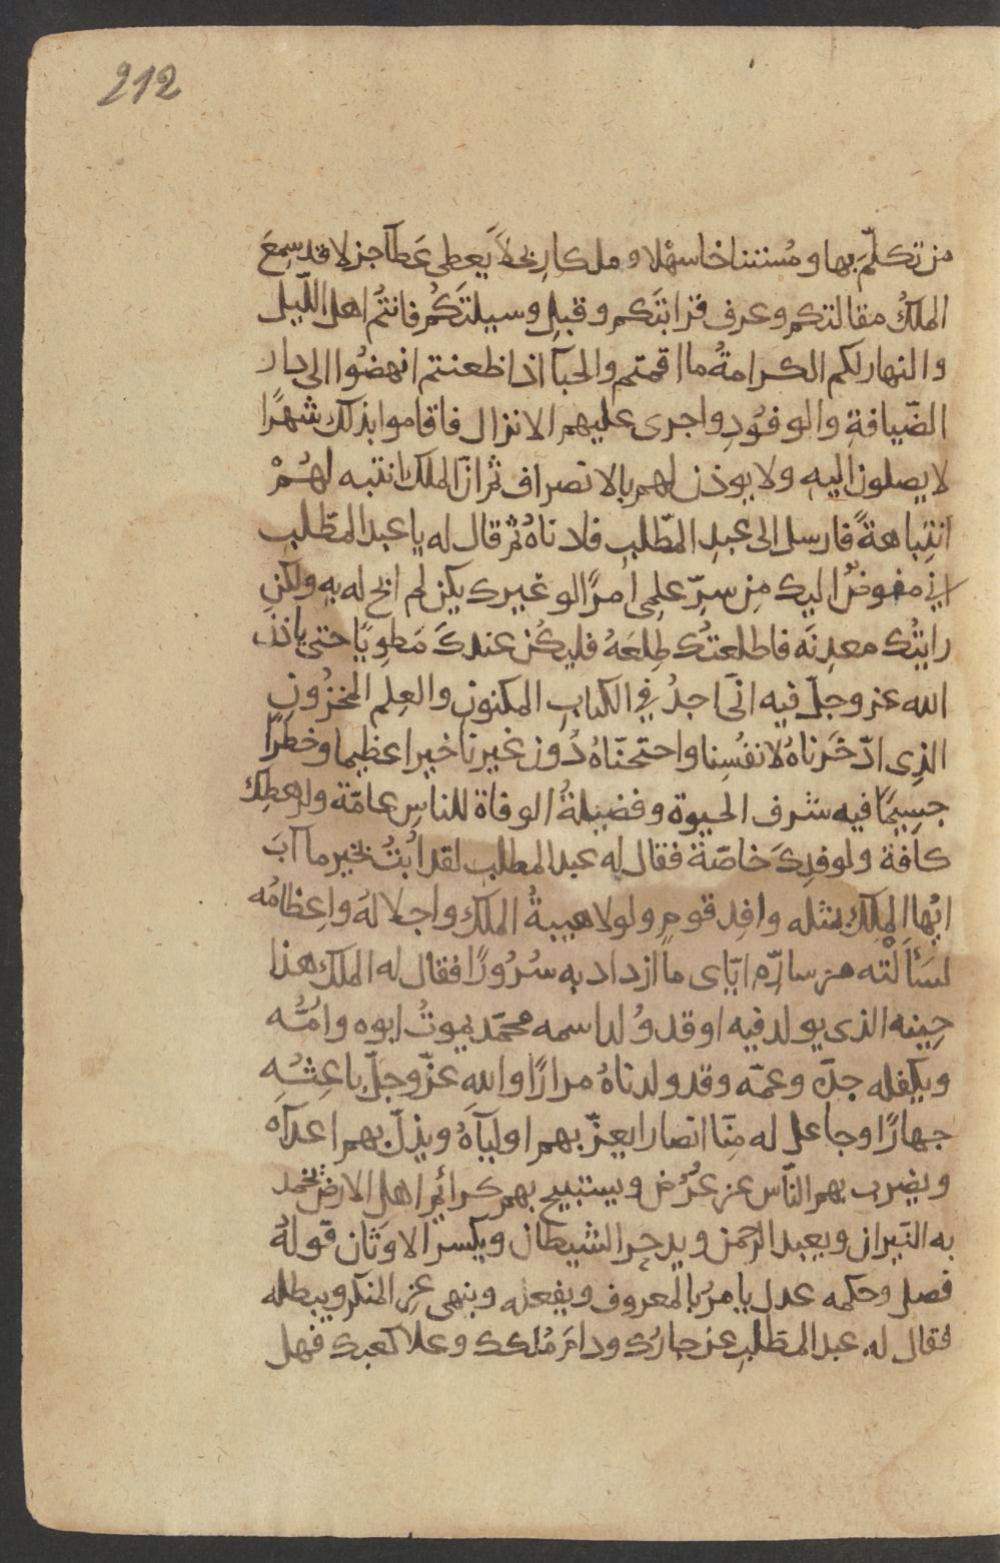 212
من تكلّم بها ومُستناخا سهْلا وملكا رِبحْلاً يَعطى عَطآ جزلا قد سِمعَ
الملكُ مقالتكم وعرف قرابتَكم وقبِل وسيلتَكُم فانتُم اهل اللّيل
والنهار لكم الكرامةُ ما اقمتم والحبآ اذا ظعنتم انهضُوا الى دار
الضّيافةِ والوفُودِ واجرى عليهم الانزال فاقاموا بذلك شهرًا
لا يصلون اليه ولا يوذن لهم بالانصراف ثم ان الملك انتبه لهُمْ
انتِباهةً فارسل الى عبدِ المطّلبِ فادناهُ ثم قال له يا عبد المطّلبِ
اني مفوضٌ اليك مِن سِرّ علمِى امرًا لو غيرك يكن لم ابح له بِه ولكن
رايتُك معدِنَه فاطلعتُك طِلعَهُ فليكُن عندكَ مَطوِيًا حتى ياذن
الله عز وجلّ فيه انّى اجدُ في الكتابِ المكنونِ والعِلم المخزُونِ
الذِى ادّخَرناهُ لانفُسِنا واحتجنّاهُ دُون غيرنا خيرا عظيما وخطرًا
جسِيمًا فيه شرف الحيوة وفضيلةُ الوفاة للناسِ عامّة ولرهطِك
كافة ولوفدِكَ خاصّة فقال له عبد المطلب لقد ابُتُ بخير ما آبَ
ايُّها الملِك بمثله وافِد قومٍ ولولا هيبةُ الملك واجلالهُ واِعظامُه
لسَألْته من سارّه ايّاى ما ازداد به سُرُورًا فقال له الملك هذا
حِينه الذى يولد فيه اوقد وُلد اسمه محمّد يموتُ ابوه وامُّه
ويكفله جدّه وعمّه وقد ولدناهُ مرارًا واللهِ عزّ وجلّ باعِثُهِ
جهارًا وجاعل له مِنّا انصارا يعِزّ بهم اوليآهُ ويذلّ بهم اعدآه
ويضرب بهم النّاس عن عُرُض ويستبيح بهم كرائم اهل الارض تخمد
به النّيران ويعبد الرحمن ويدحر الشيطان ويكسر الاوثان قولهُ
فصل وحكمه عدل يامرُ بالمعروف ويفعله وينهى عنِ المنكر ويبطله
فقال له عبد المطّلبِ عز جارُك ودامَ مُلكك وعلا كعبك فهل